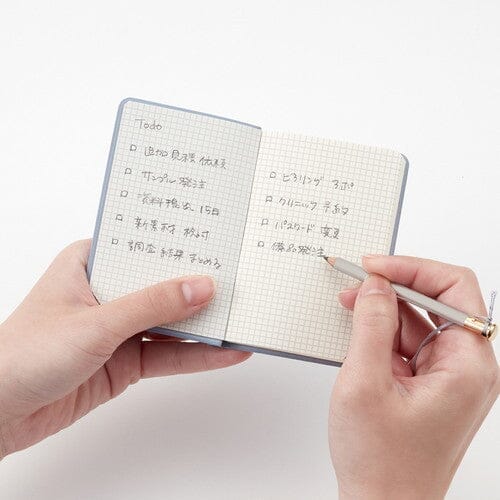 Todo
□ 追加見積依頼
□ サンプル発注
□ 資料提出 15日
□ 新素材 検討
□ 調査結果まとめる
□ ヒアリング 3ポ
□ クリニック 予約
□ パスワード 変更
□ 備品発注